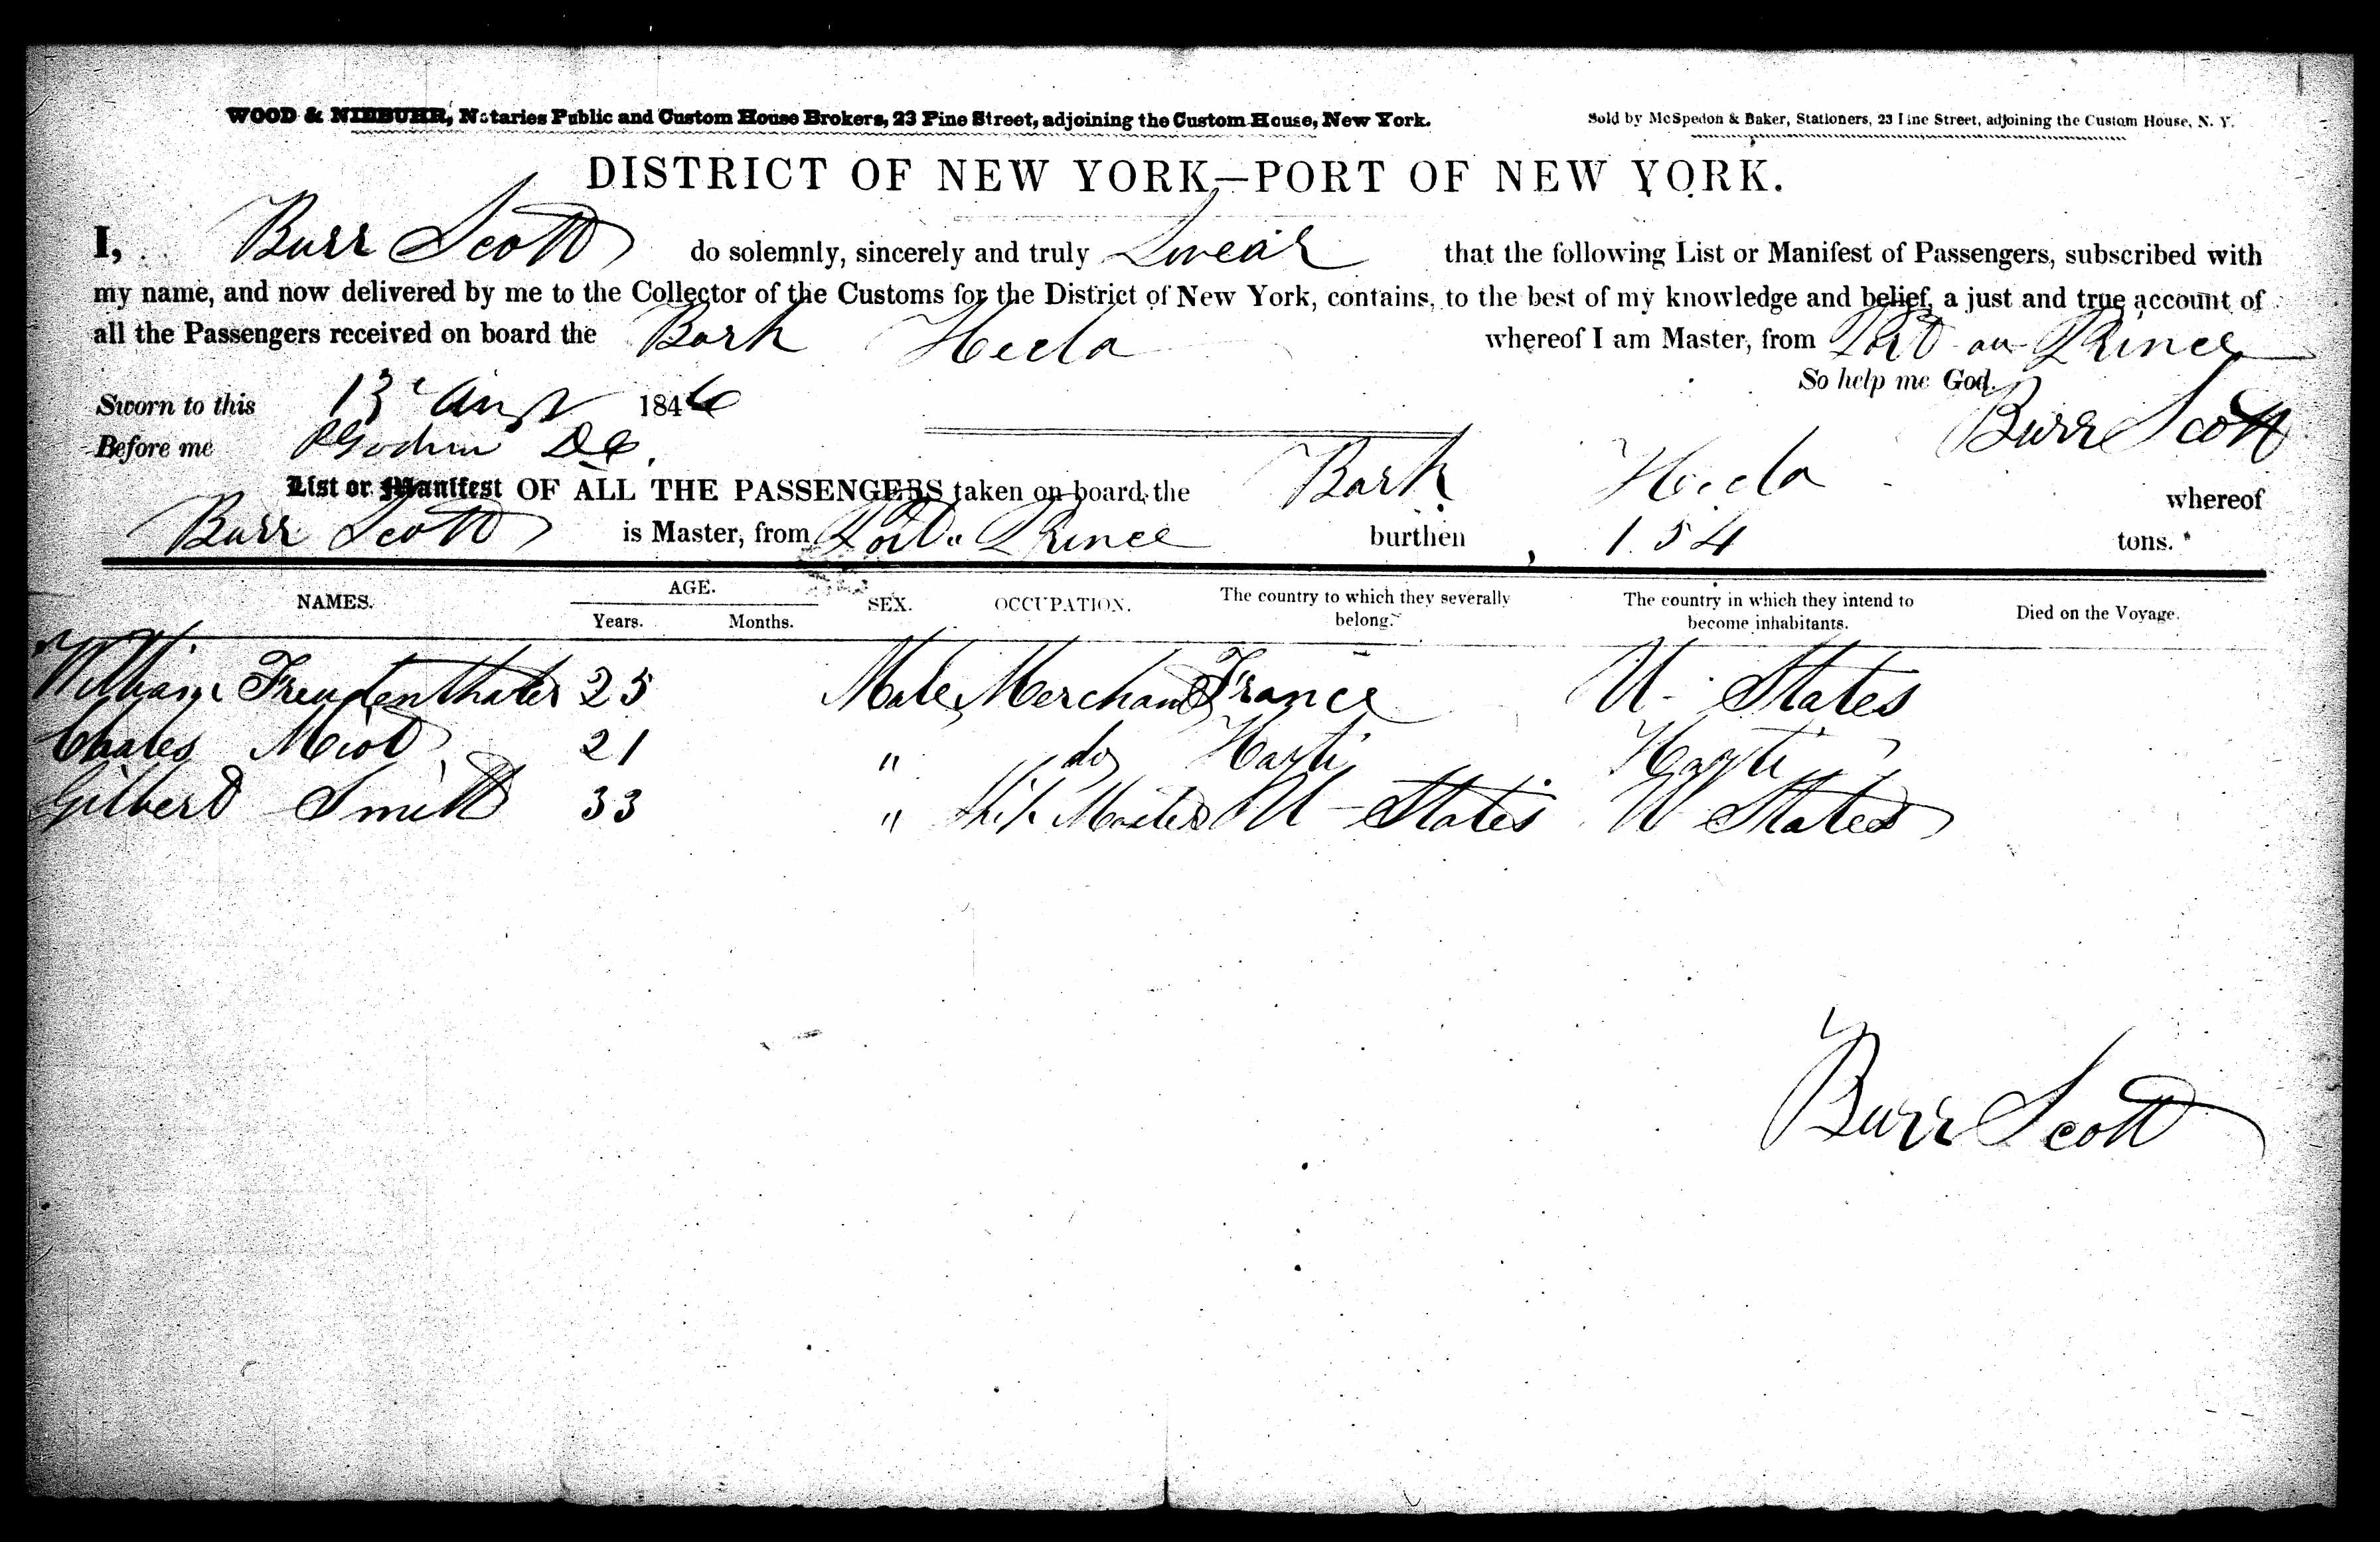 WOOD & NIEBUHR, Notaries Public and Custom House Brokers, 23 Pine Street, adjoining the Custom House, New York.
Sold by McSpedon & Baker, Stationers, 23 Pine Street, adjoining the Custom House, N. Y.
DISTRICT OF NEW YORK—PORT OF NEW YORK.
I, Burr Scott do solemnly, sincerely and truly Swear that the following List or Manifest of Passengers, subscribed with
my name, and now delivered by me to the Collector of the Customs for the District of New York, contains, to the best of my knowledge and belief, a just and true account of
all the Passengers received on board the Bark Hecla whereof I am Master, from Port au Prince
So help me God.
Sworn to this 13 Augt 1846 Burr Scott
Before me
List or Manifest OF ALL THE PASSENGERS taken on board the Bark Hecla whereof
Burr Scott is Master, from Port " Prince burthen , 154 tons.
NAMES. AGE. SEX. OCCUPATION. The country to which they severally The country in which they intend to Died on the Voyage.
Years. Months. belong. become inhabitants.
William Freudenthaler 25 Male Merchant France U. States
Charles Miot 21 " do Hayti Hayti
Gilbert Smith 33 " Ship Master U-States U States
Burr Scott